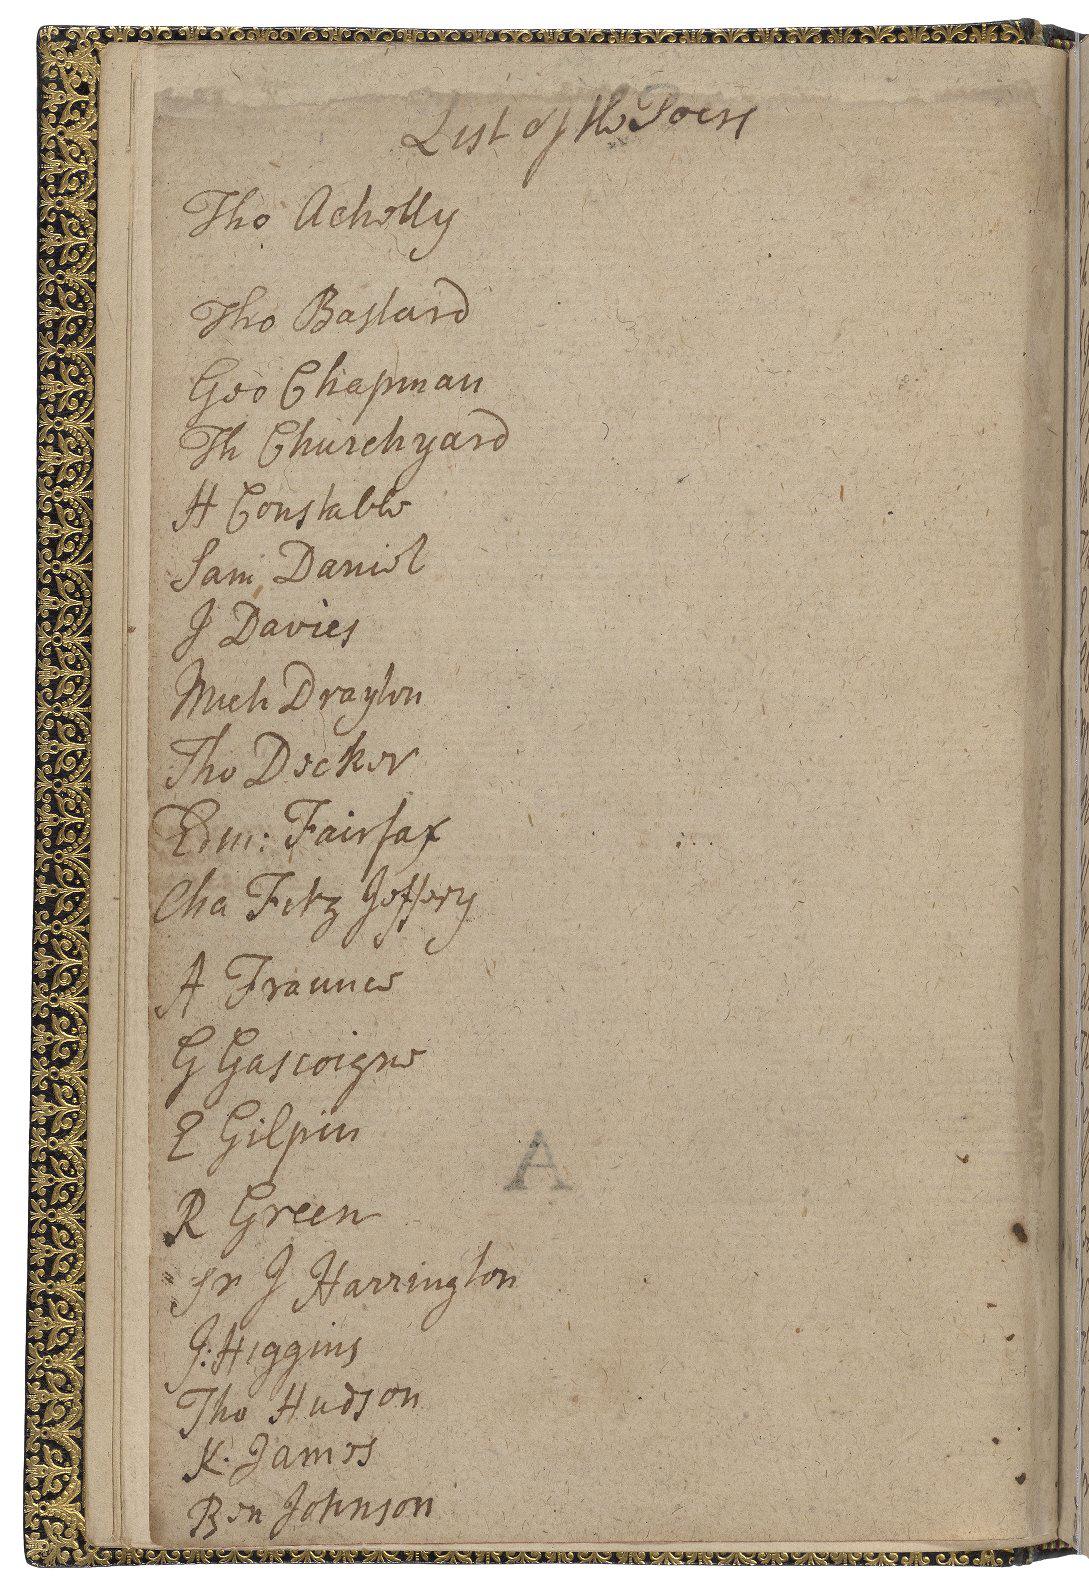 List of the Poets
Tho Acholly
Tho Bastard
Geo Chapman
Th Churchyard
H Constable
Sam Daniel
J Davies
Mich Drayton
Tho Decker
Edm: Fairfax
Cha Fitz Jeffery
A Fraunce
G Gascoigne
E Gilpin
A
R Green
Sr J Harrington
J: Higgins
Tho Hudson
K. James
Ben Johnson